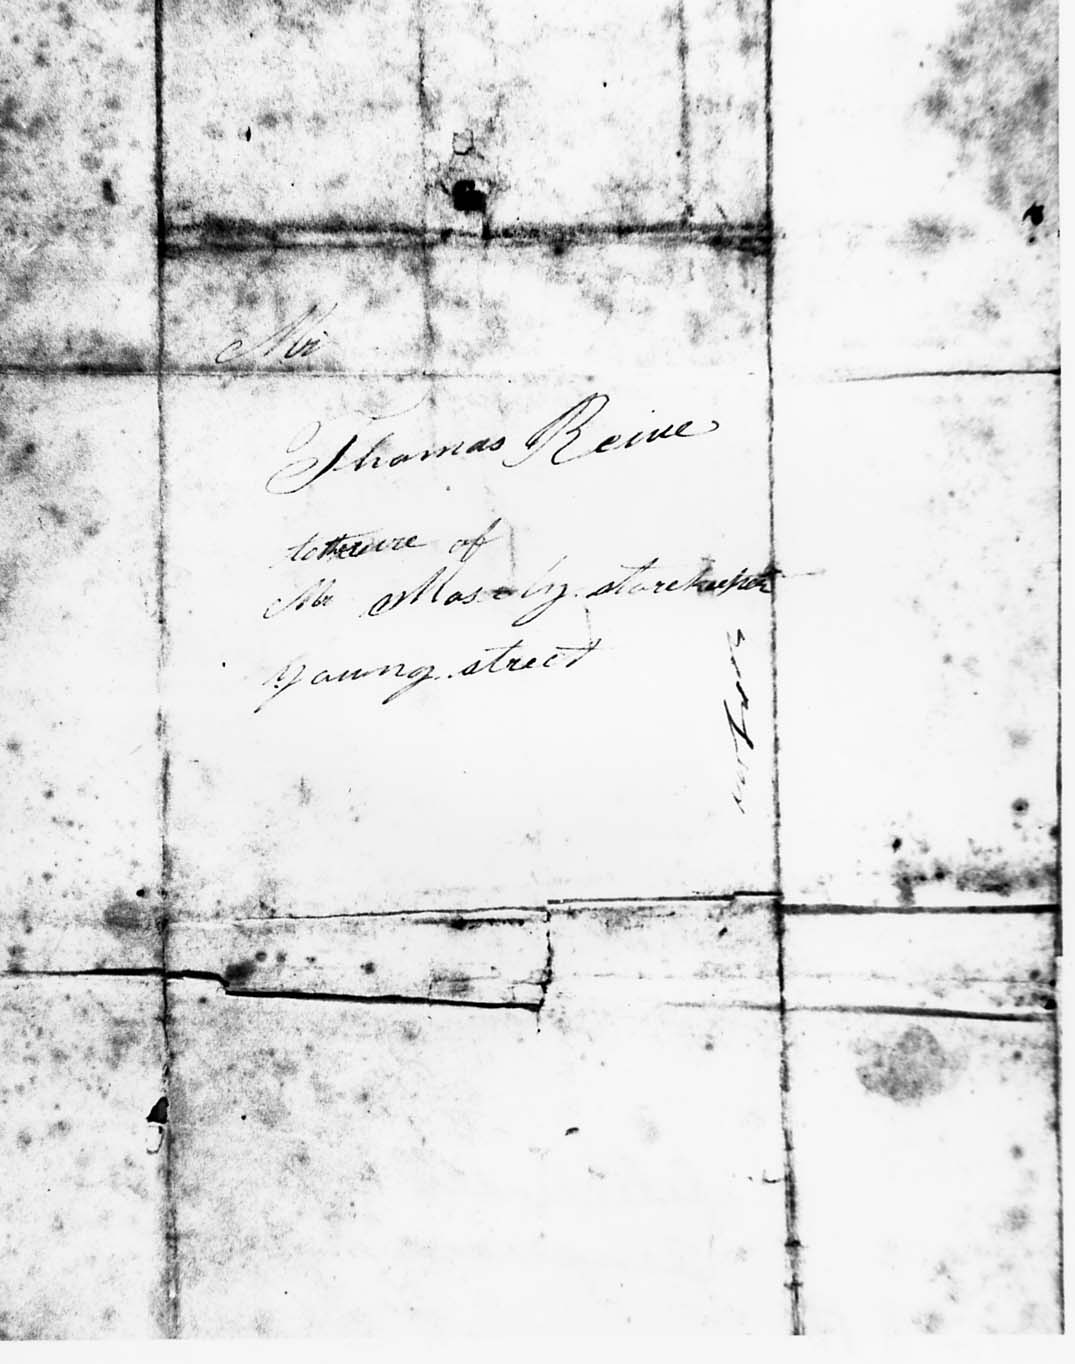 Mr
Thomas Reive
to the care of
Mr Mosely storekeeper
young street